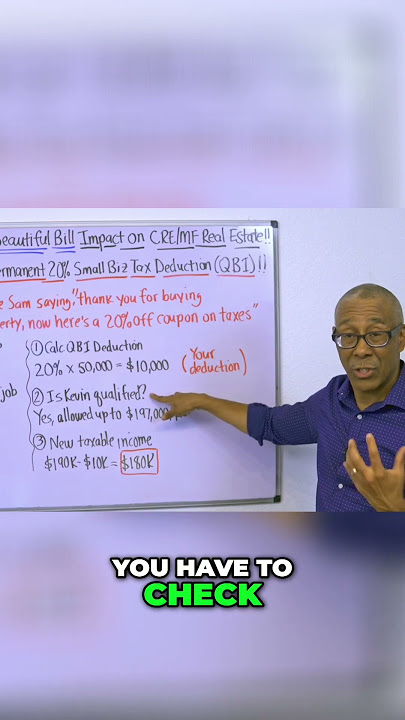 eautiful Bill Impact on CRE/MF Real Estate!!
ermanent 20% Small Biz Tax Deduction (QBI)!!
e Sam saying,"thank you for buying
erty, now here's a 20% off coupon on taxes"
① Calc QBI Deduction
20% x 50,000 = $10,000 (Your deduction)
job
② Is Kevin qualified?
Yes, allowed up to $197,000
③ New taxable income
$190K-$10K = $180K
YOU HAVE TO
CHECK